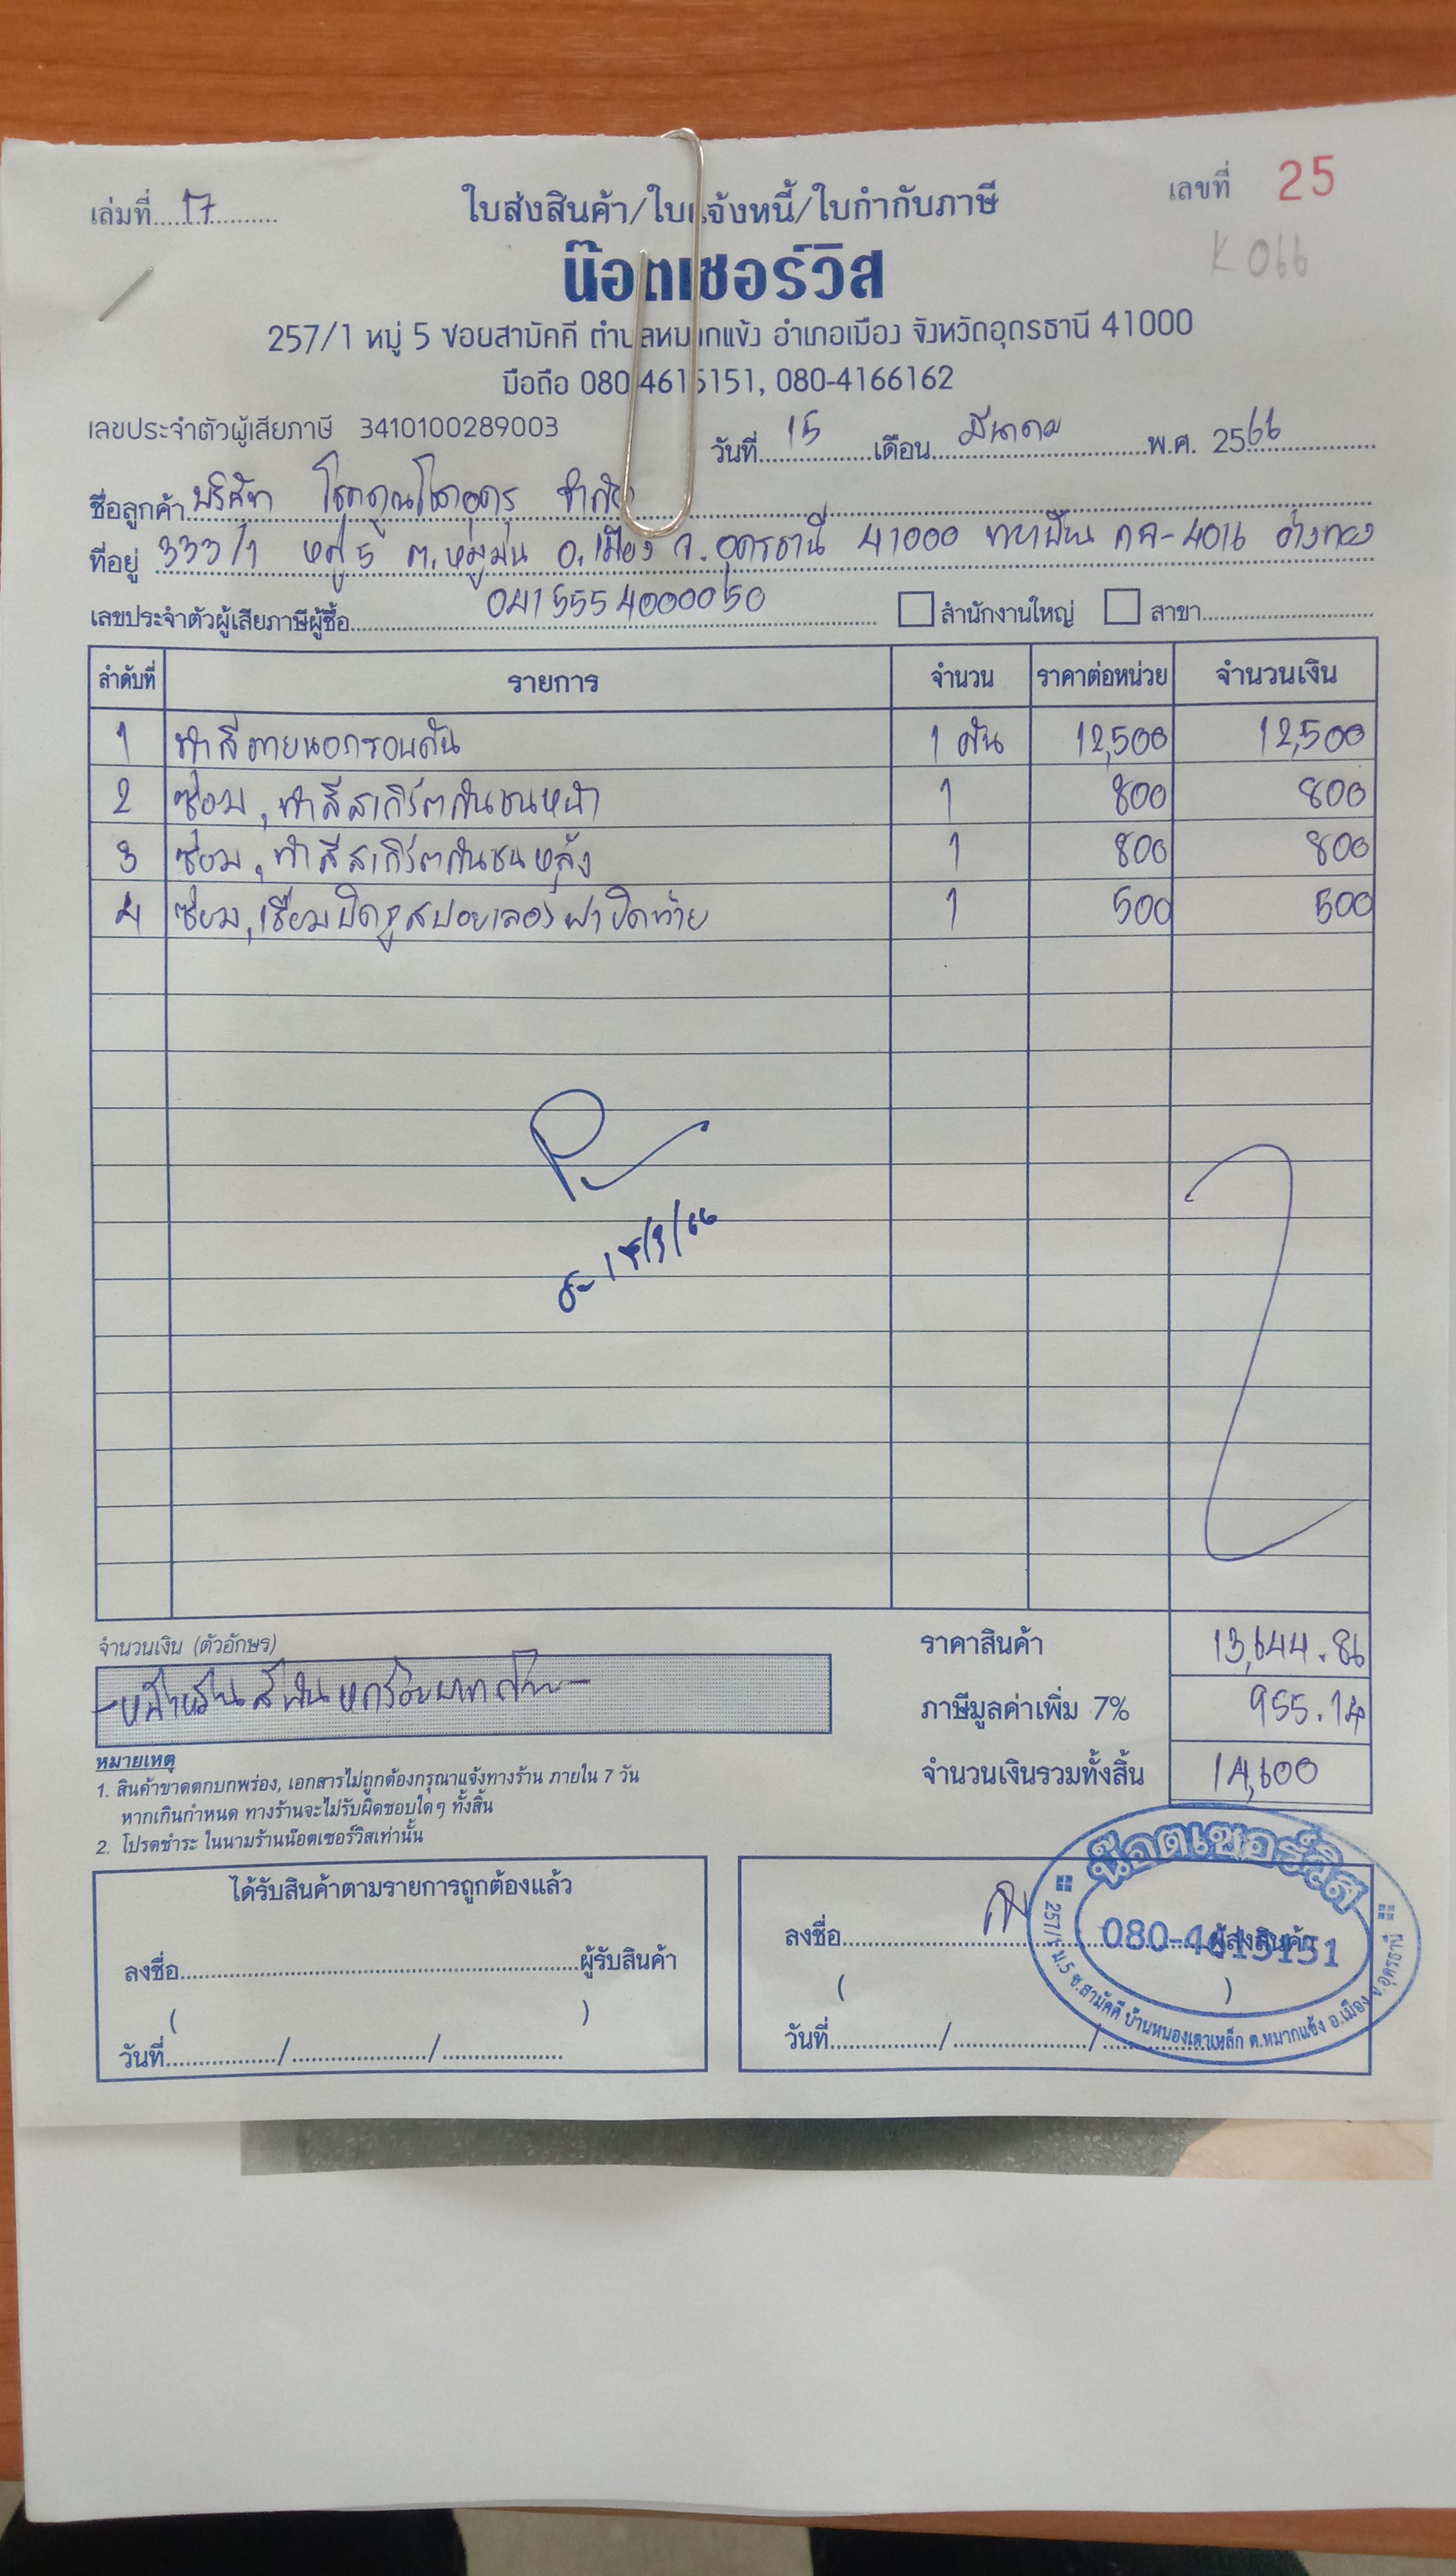 เล่มที่ 17
ใบส่งสินค้า/ใบแจ้งหนี้/ใบกำกับภาษี
เลขที่ 25
K 066
น๊อตเซอร์วิส
257/1 หมู่ 5 ซอยสามัคคี ตำบลหมากแข้ง อำเภอเมือง จังหวัดอุดรธานี 41000
มือถือ 080-4615151, 080-4166162
เลขประจำตัวผู้เสียภาษี 3410100289003
วันที่ 15 เดือน มีนาคม พ.ศ. 2566
ชื่อลูกค้า บริษัท โชคคูณโชคอุดร จำกัด
ที่อยู่ 333/1 หมู่ 5 ต.หมูม่น อ.เมือง จ.อุดรธานี 41000 ทะเบียน กค-4016 อ่างทอง
เลขประจำตัวผู้เสียภาษีผู้ซื้อ 0415554000050 สำนักงานใหญ่ สาขา
ลำดับที่ รายการ จำนวน ราคาต่อหน่วย จำนวนเงิน
1 ทำสีภายนอกรอบคัน 1 คัน 12,500 12,500
2 ซ่อม, ทำสีสเกิร์ตกันชนหน้า 1 800 800
3 ซ่อม, ทำสีสเกิร์ตกันชนหลัง 1 800 800
4 ซ่อม, เชื่อมปิดรูสปอยเลอร์ฝาปิดท้าย 1 500 500
15/3/66
จำนวนเงิน (ตัวอักษร)
ราคาสินค้า 13,644.86
-หนึ่งหมื่นสี่พันหกร้อยบาทถ้วน-
ภาษีมูลค่าเพิ่ม 7% 955.14
จำนวนเงินรวมทั้งสิ้น 14,600
หมายเหตุ
1. สินค้าขาดตกบกพร่อง, เอกสารไม่ถูกต้องกรุณาแจ้งทางร้าน ภายใน 7 วัน
หากเกินกำหนด ทางร้านจะไม่รับผิดชอบใดๆ ทั้งสิ้น
2. โปรดชำระ ในนามร้านน๊อตเซอร์วิสเท่านั้น
ได้รับสินค้าตามรายการถูกต้องแล้ว
ลงชื่อ ผู้รับสินค้า
( )
วันที่ / /
ลงชื่อ ผู้ส่งสินค้า
( )
วันที่ / /
น๊อตเซอร์วิส
080-4615151
257/1 ม.5 ซ.สามัคคี บ้านหนองเตาเหล็ก ต.หมากแข้ง อ.เมือง จ.อุดรธานี